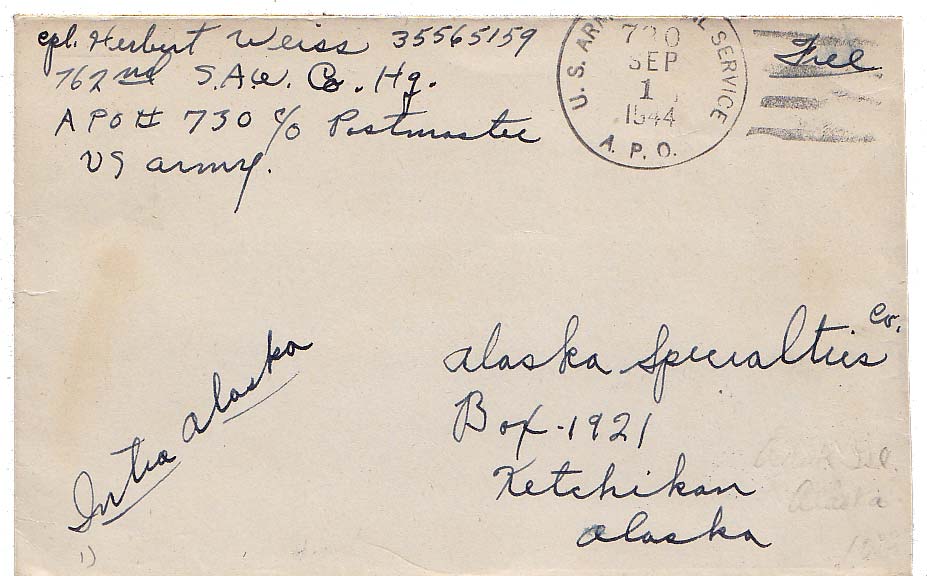 cpl. Herbert Weiss 35565159
762nd S.A.W. Co. Hq.
APO # 730 c/o Postmaster
US army.
U.S. ARMY SERVICE
730
SEP
1
1944
A.P.O.
Free
Intra Alaska
Alaska Specialties Co.
Box-1921
Ketchikan
Alaska
Alaska
1)